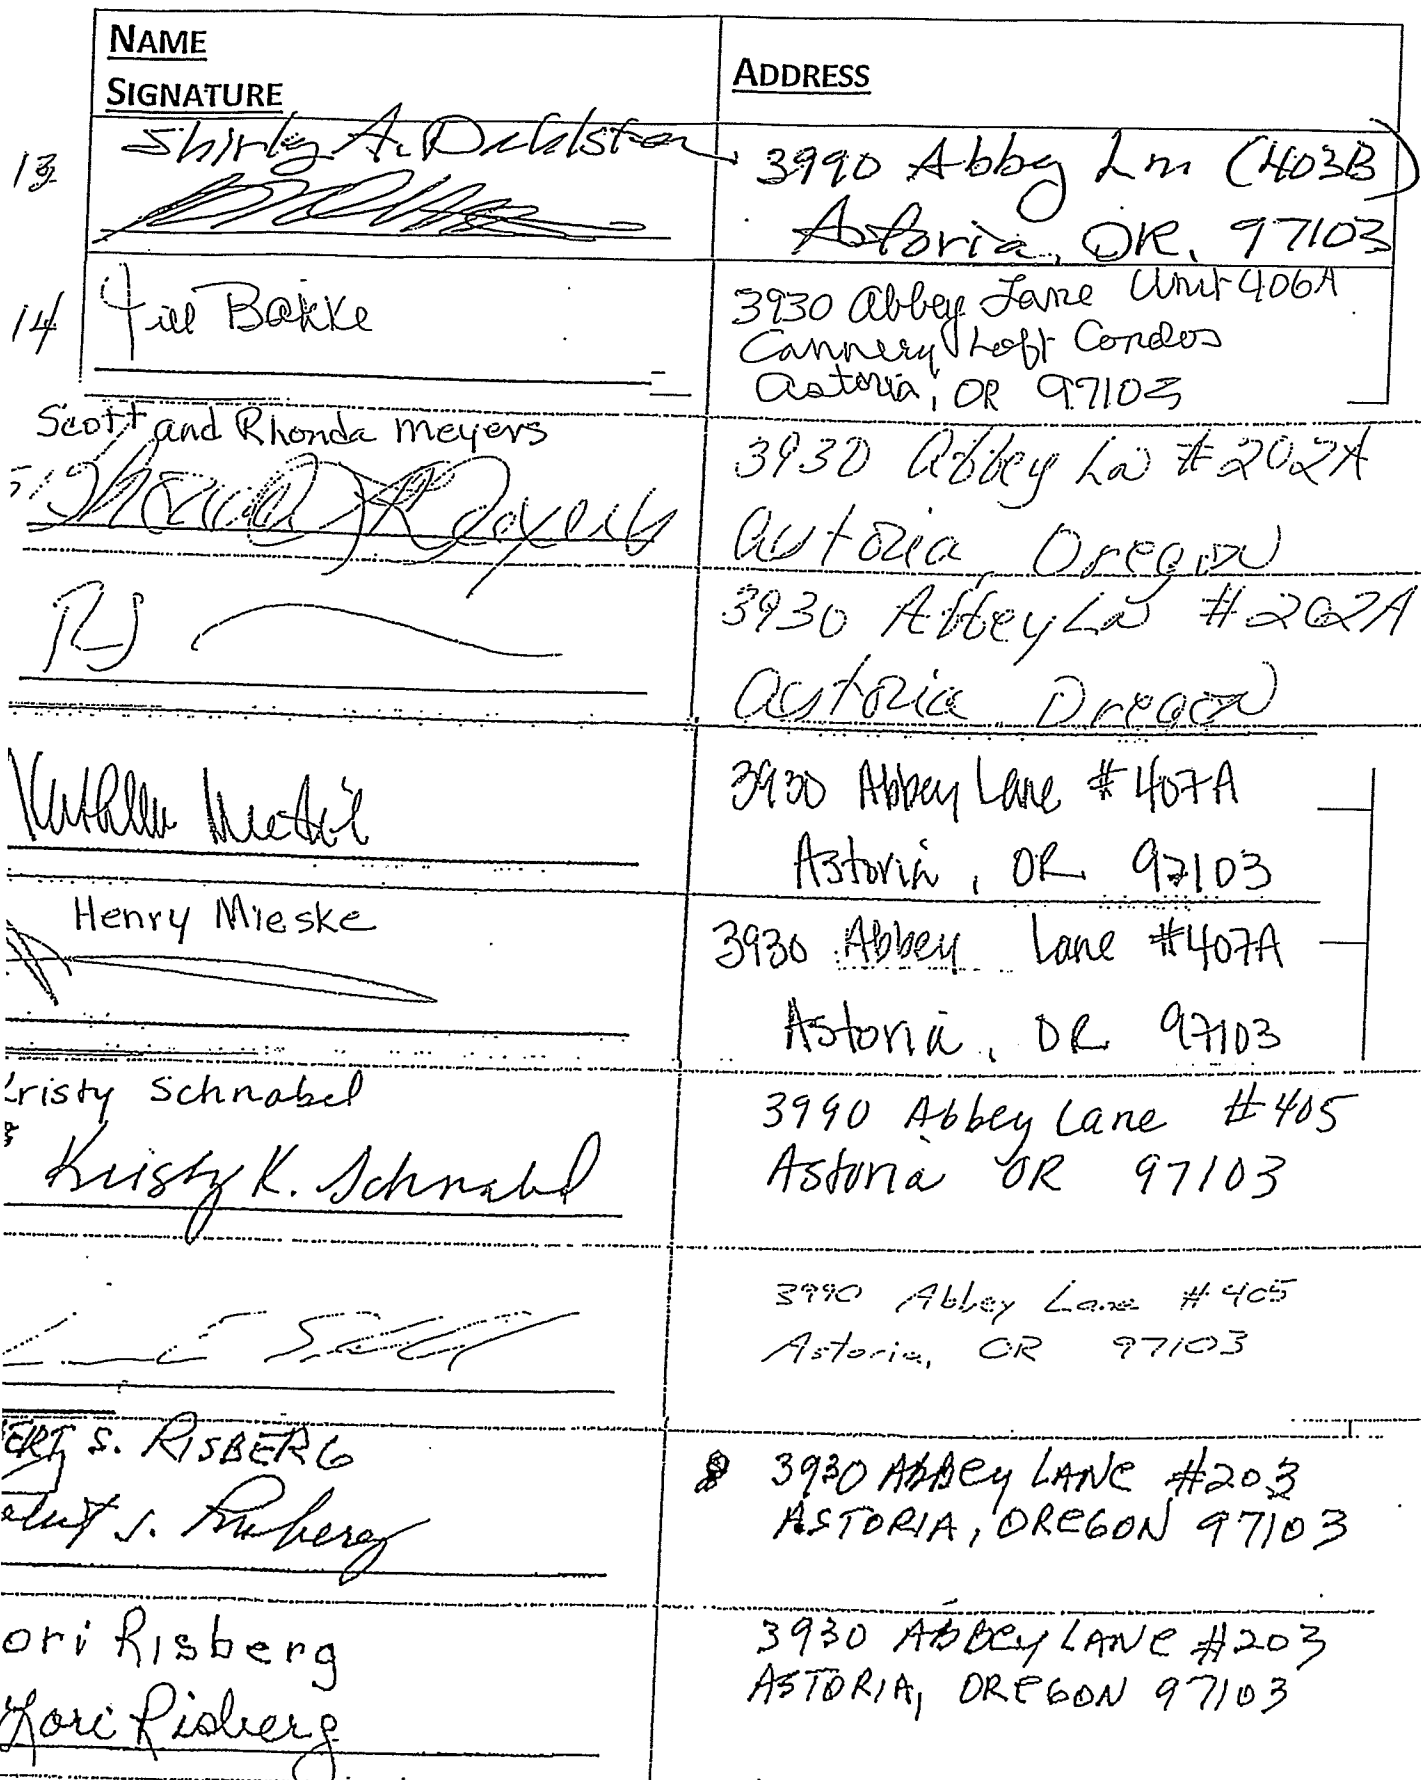 NAME
SIGNATURE
ADDRESS
13
Shirley A. Dahlsten
3990 Abby Ln (403B)
Astoria, OR. 97103
14
Jill Bakke
3930 Abbey Lane Unit 406A
Cannery Loft Condos
Astoria, OR 97103
Scott and Rhonda Meyers
3930 Abbey Ln #202A
Astoria, Oregon
RJ
3930 Abbey Ln #202A
Astoria, Oregon
Kathleen
3930 Abbey Lane #407A
Astoria, OR 97103
Henry Mieske
3930 Abbey Lane #407A
Astoria, OR 97103
Kristy Schnabel
Kristy K. Schnabel
3990 Abbey Lane #405
Astoria OR 97103
3990 Abbey Lane #405
Astoria, OR 97103
ERT S. RISBERG
S. Risberg
3930 ABBEY LANE #203
ASTORIA, OREGON 97103
ori Risberg
Lori Risberg
3930 ABBEY LANE #203
ASTORIA, OREGON 97103